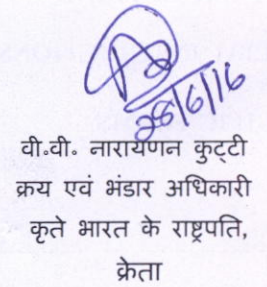 28/6/16
वी॰वी॰ नारायणन कुट्टी
क्रय एवं भंडार अधिकारी
कृते भारत के राष्ट्रपति,
क्रेता